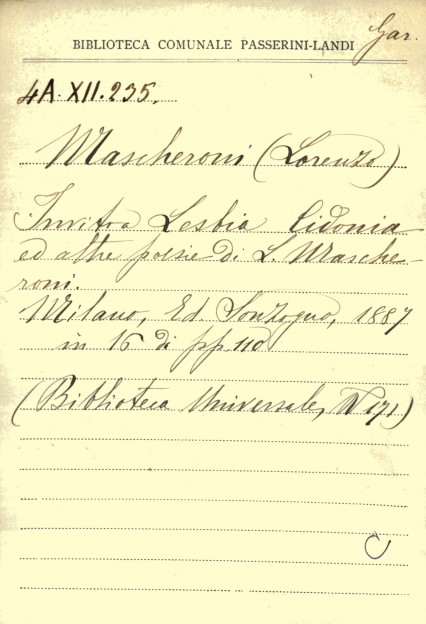 Gar.
BIBLIOTECA COMUNALE PASSERINI-LANDI
4A. XII. 235.
Mascheroni (Lorenzo)
Invito a Lesbia Cidonia
ed altre poesie di L. Masche-
roni.
Milano, Ed. Sonzogno, 1887
in 16 di pp 110
(Biblioteca Universale, N 171)
C